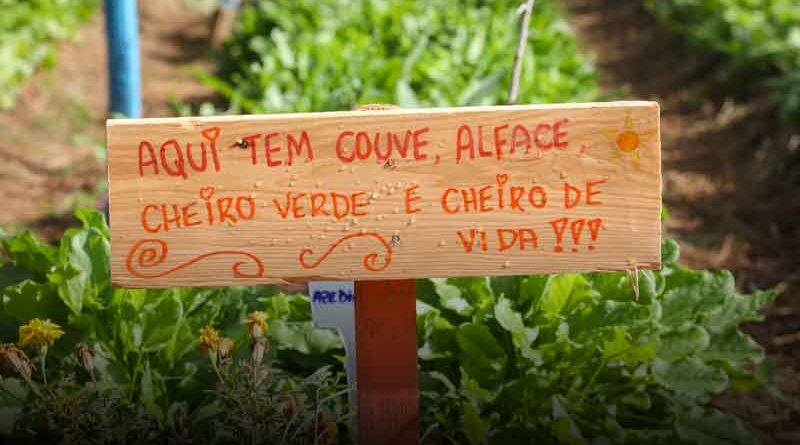 AQUI TEM COUVE, ALFACE,
CHEIRO VERDE E CHEIRO DE
VIDA!!!